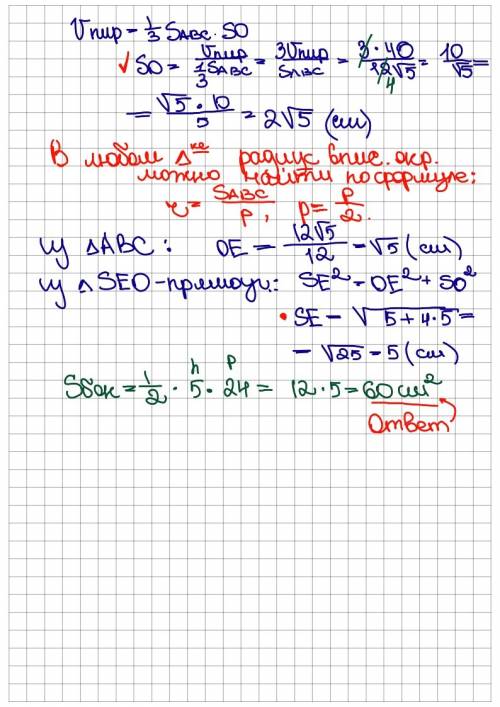 Vпир = 1/3 SABC · SO
✓ SO = Vпир / (1/3 SABC) = 3Vпир / SABC = 3 · 40 / 12√5 = 10 / √5 =
4
= √5 · 10 / 5 = 2√5 (см)
В любом Δ^ке радиус впис. окр.
можно найти по формуле:
r = SABC / P, p = P / 2.
из ΔABC: OE = 12√5 / 12 = √5 (см)
из ΔSEO - прямоуг.: SE² = OE² + SO²
• SE = √5 + 4·5 =
= √25 = 5 (см)
h P
Sбок = 1/2 · 5 · 24 = 12 · 5 = 60 см²
Ответ